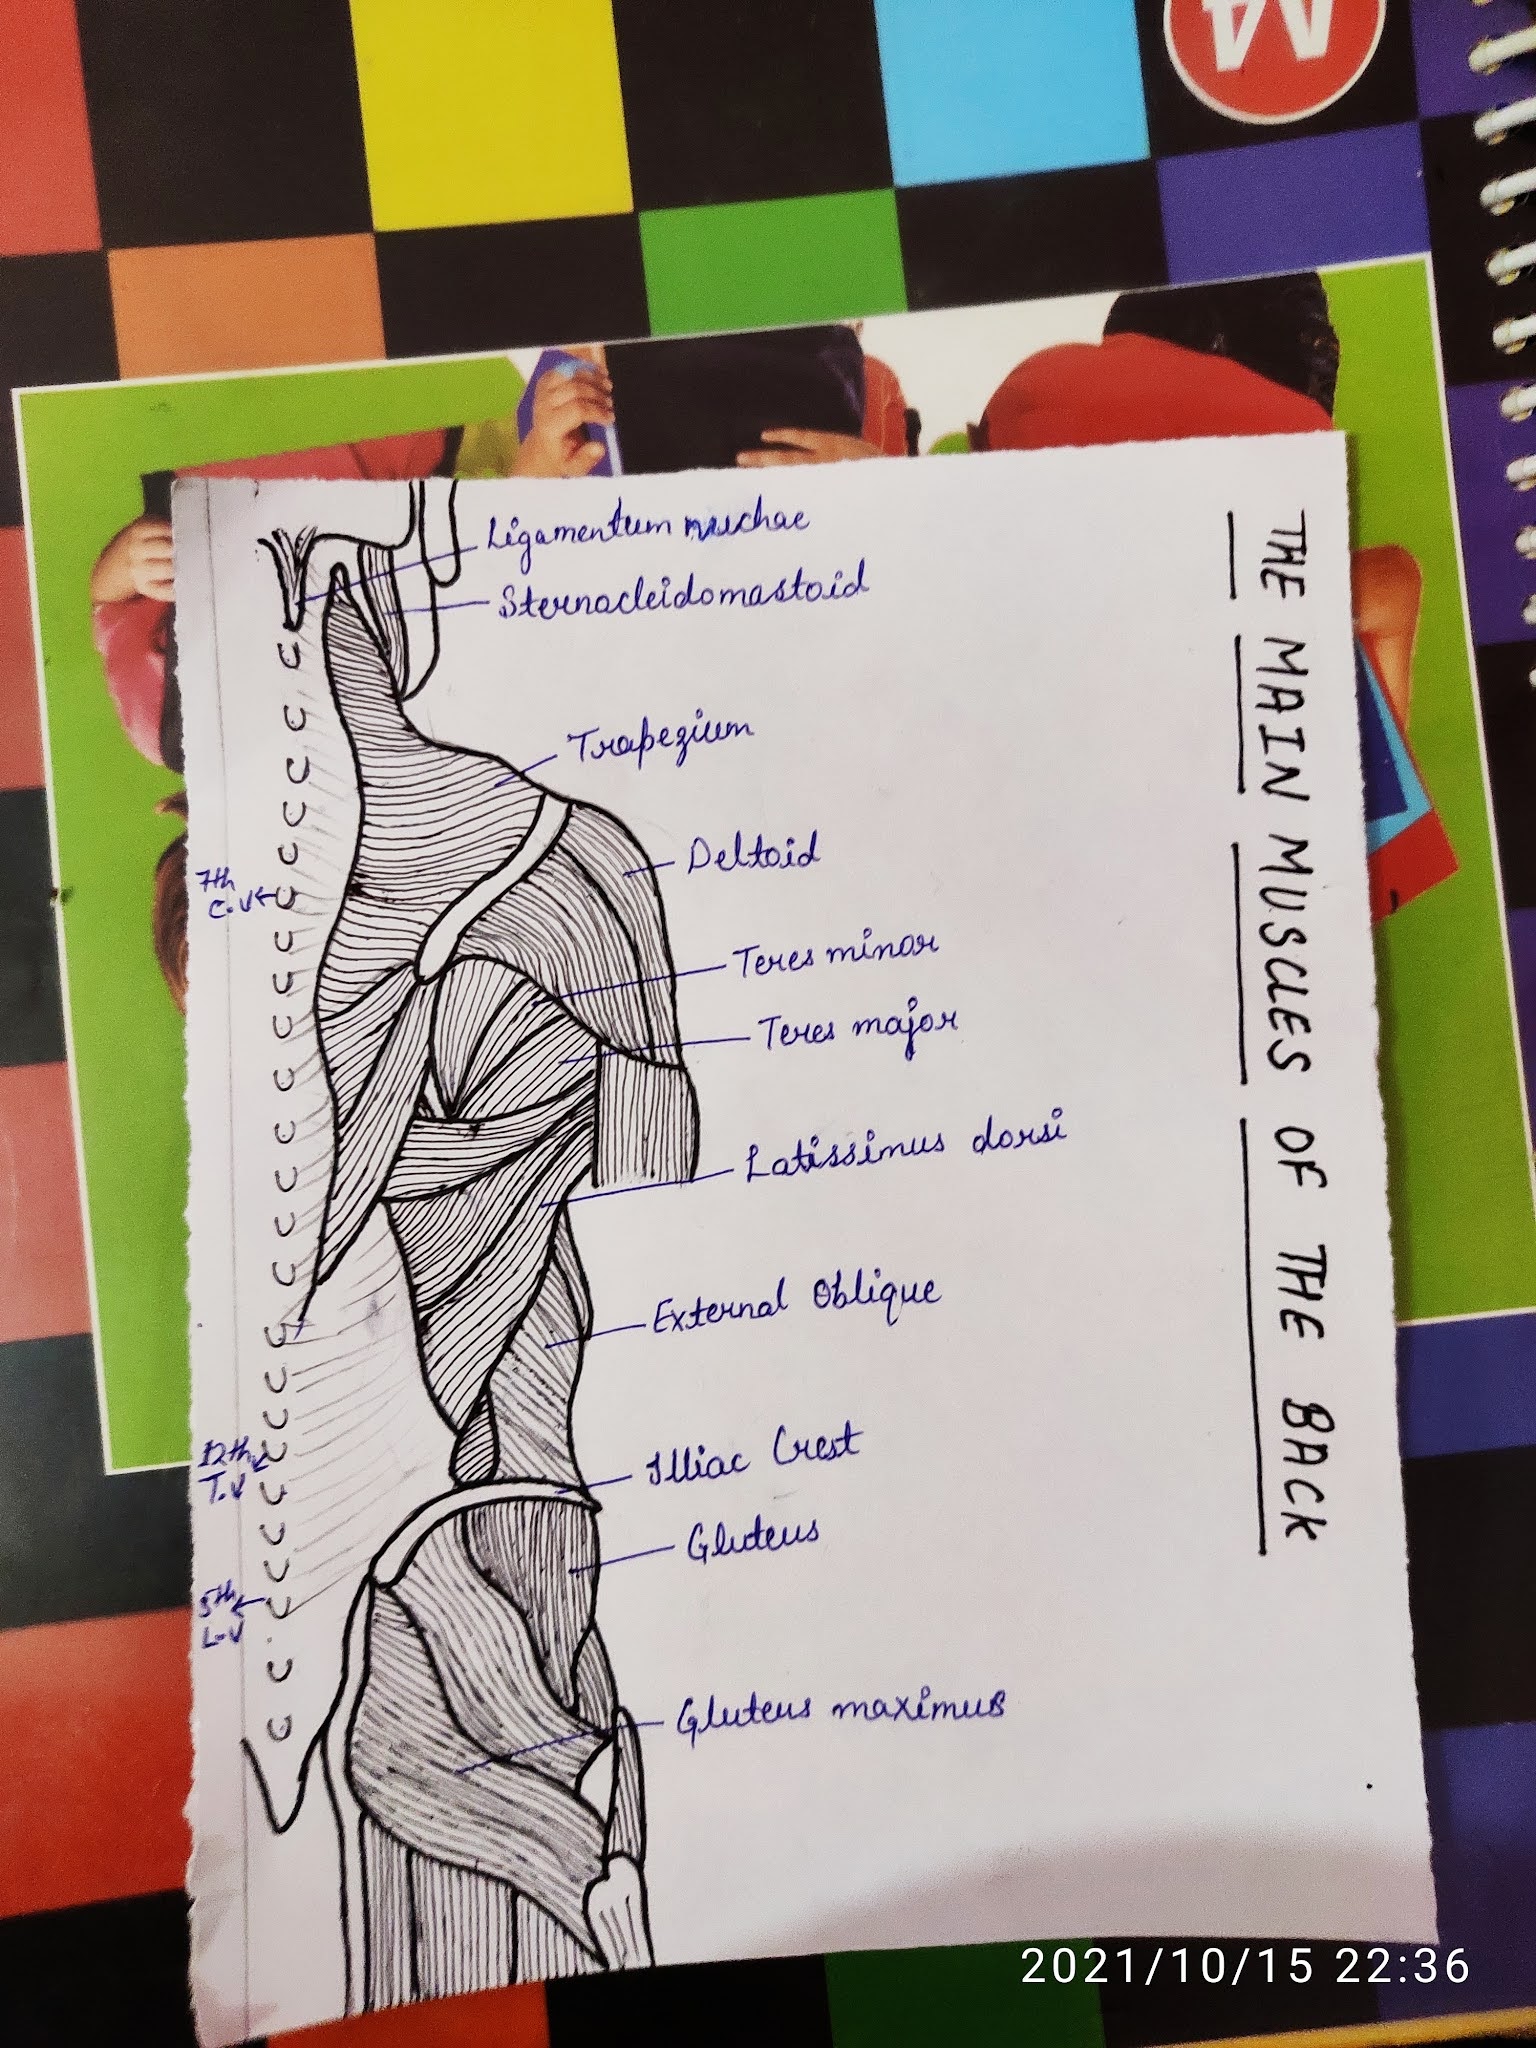 THE MAIN MUSCLES OF THE BACK
Ligamentum nuchae
Sternocleidomastoid
Trapezium
Deltoid
7th
C.V
Teres minor
Teres major
Latissimus dorsi
External Oblique
Illiac Crest
12th
T.V
Gluteus
5th
L-V
Gluteus maximus
2021/10/15 22:36